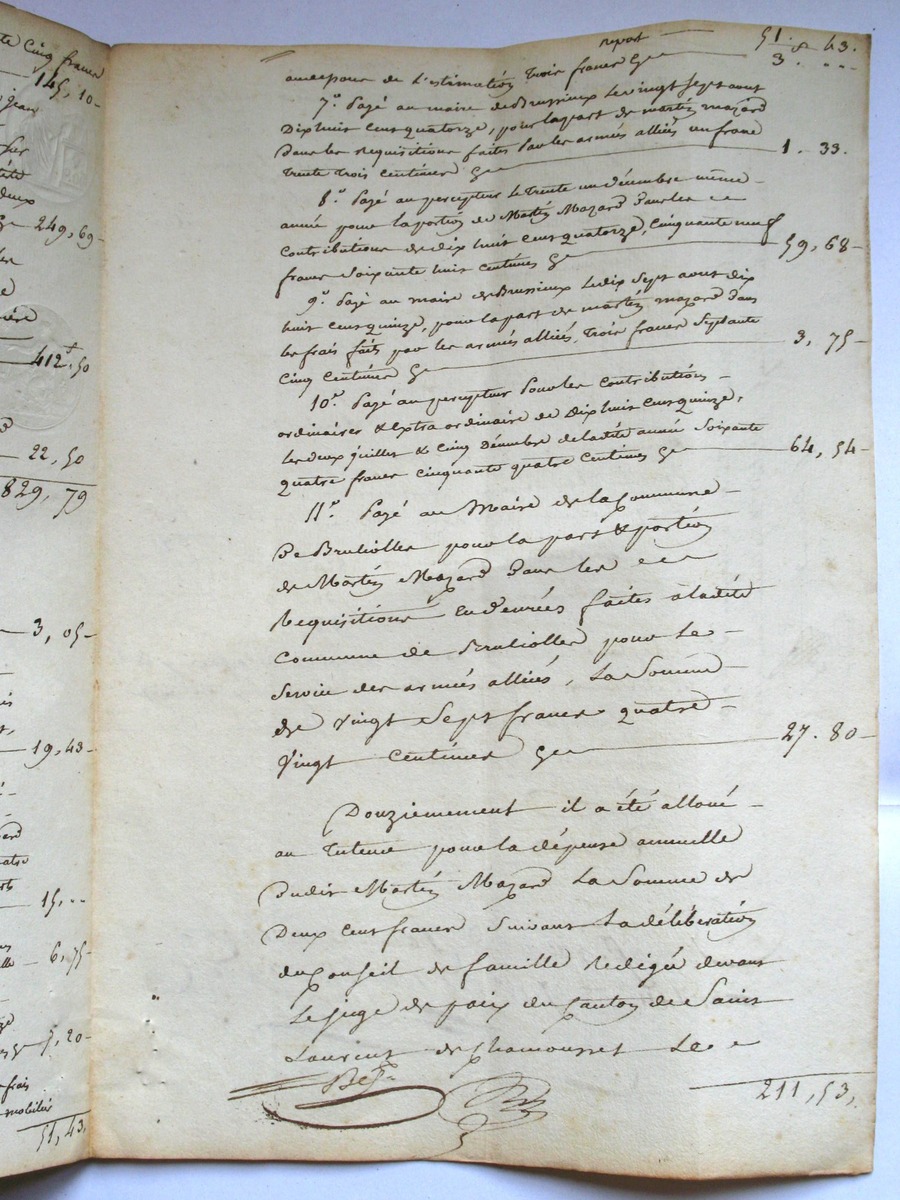 te Cinq francs
145, 10-
249, 69-
412, 50
22, 50
829, 79
3, 05-
19, 43-
15, ..
6, 75-
7, 20-
frais
mobilier
51, 43.
report 51. 43.
de L'estimation trois francs 3. ...
7.° Payé au maire de Brussieux Le vingt Sept aout
Dix huit Cens quatorze, pour la part de martin mazard
Dans les Requisitions faites par les armés alliés un franc
trente trois Centimes 1. 33.
8.° Payé au percepteur le trente un décembre même
année pour la portion de Martin Mazard Dans les
Contributions de dix huit Cens quatorze, Cinquante neuf
francs Soixante huit Centimes 59, 68-
9.° Payé au maire de Brussieux Le dix Sept aout dix
huit Cens quinze, pour la part de martin mazard Dans
les frais faits par les armés alliés, trois francs Septante
Cinq Centimes 3, 75-
10.° Payé au percepteur Pour les Contributions
ordinaires & Extraordinaire de Dix huit Cens quinze,
les deux juillet & Cinq Décembre de ladite année Soixante
quatre francs Cinquante quatre Centimes 64, 54-
11.° Payé au Maire de la Commune
de Brulliolles pour la part & portion
de Martin Mazard Dans les
Requisitions en denrées faites à ladite
Commune de Brulliolles pour Le
Service des armés alliés, La Somme
de vingt Sept francs quatre
Vingt Centimes 27. 80-
Douziemement il a été alloué
au Tuteur pour la dépense annuelle
Dudit Martin Mazard La Somme de
Deux Cens francs Suivant La déliberation
du Conseil de famille Redigée devant
Le juge de paix du Canton de Saint
Laurent de Chamousset Le
211, 53,